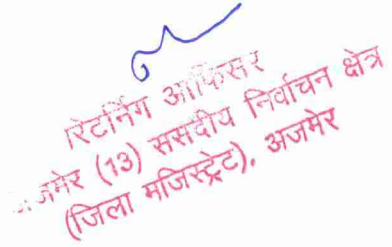 रिटर्निंग आफिसर
अजमेर (13) ससदीय निर्वाचन क्षेत्र
(जिला मजिस्ट्रेट), अजमेर